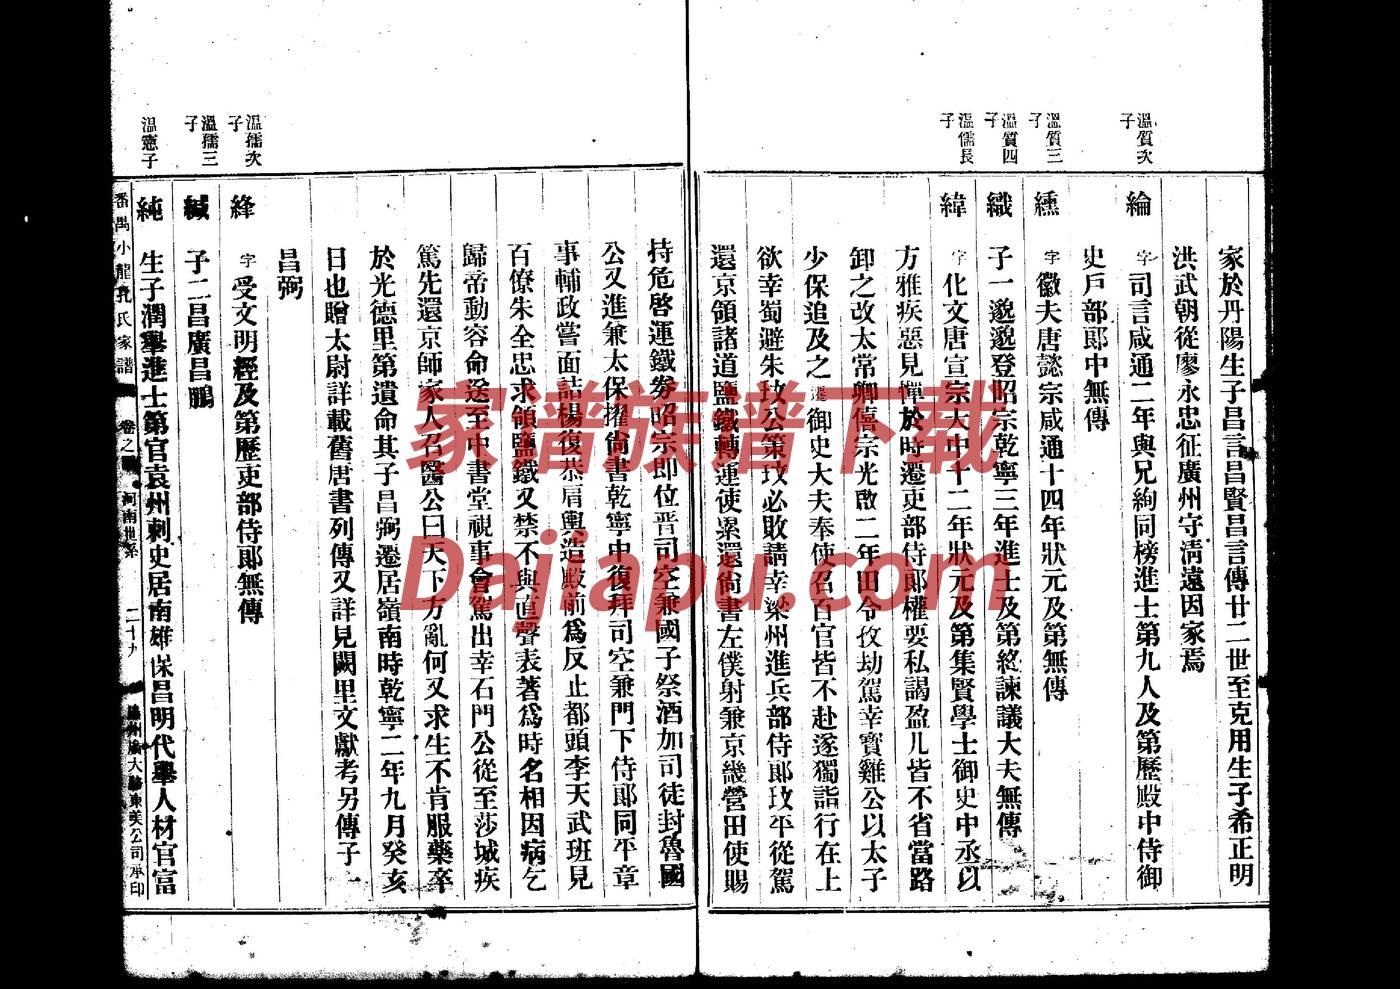 家於丹陽生子昌言昌賢昌言傳廿二世至克用生子希正明
洪武朝從廖永忠征廣州守清遠因家焉
溫質次子
綸 字司言咸通二年與兄絢同榜進士第九人及第歷殿中侍御
史戶部郎中無傳
溫質三子
纁 字徽夫唐懿宗咸通十四年狀元及第無傳
溫質四子
織 子一邈邈登昭宗乾寧三年進士及第終諫議大夫無傳
溫儒長子
緯 字化文唐宣宗大中十二年狀元及第集賢學士御史中丞以
方雅疾惡見憚於時遷吏部侍郎權要私謁盈几皆不省當路
卸之改太常卿僖宗光啟二年田令孜劫駕幸寶雞公以太子
少保追及之遷御史大夫奉使召百官皆不赴遂獨詣行在上
欲幸蜀避朱玫公策玫必敗請幸梁州進兵部侍郎玫平從駕
還京領諸道鹽鐵轉運使累還尚書左僕射兼京畿營田使賜
持危啓運鐵券昭宗即位晋司空兼國子祭酒加司徒封魯國
公又進兼太保擢尚書乾寧中復拜司空兼門下侍郎同平章
事輔政嘗面詰楊復恭肩輿造殿前爲反止都頭李天武班見
百僚朱全忠求領鹽鐵又禁不與直聲表著爲時名相因病乞
歸帝動容命送至中書堂視事會駕出幸石門公從至莎城疾
篤先還京師家人召醫公曰天下方亂何又求生不肯服藥卒
於光德里第遺命其子昌弼遷居嶺南時乾寧二年九月癸亥
日也贈太尉詳載舊唐書列傳又詳見闕里文獻考另傳子一
昌弼
溫孺次子
絳 字受文明經及第歷吏部侍郎無傳
溫孺三子
緘 子二昌廣昌鵬
溫憲子
純 生子潤舉進士第官袁州刺史居南雄保昌明代舉人材官富
番禺小龍孔氏家譜 卷之 河南世系 二十九 廣大 東美公司承印
家谱族谱下载
Dajiapu.com